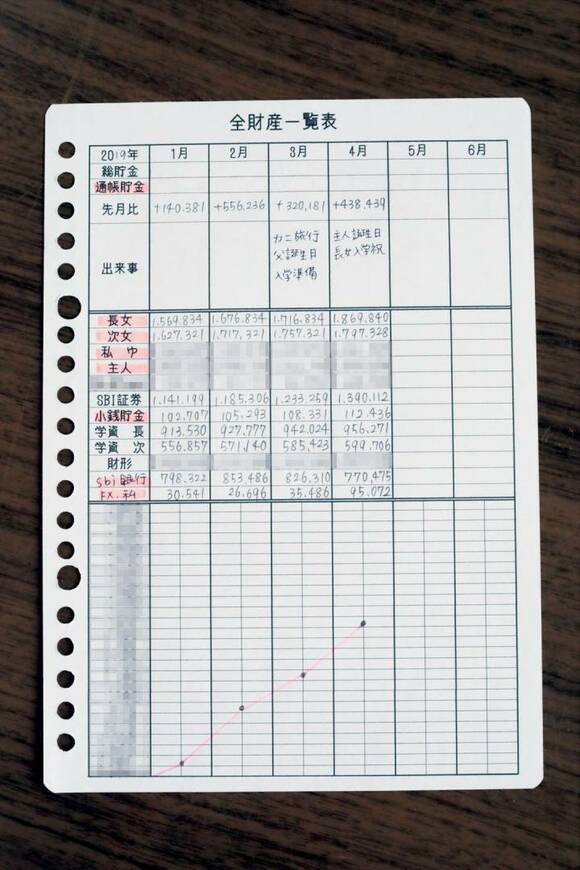 全財産一覧表
2019年 1月 2月 3月 4月 5月 6月
総貯金
通帳貯金
先月比 +140.381 +556.236 +320,181 +438.439
出来事 カニ旅行 主人誕生日
父誕生日 長女入学祝
入学準備
長女 1.569.834 1.676.834 1.716.834 1.869.840
次女 1.627.321 1.717,321 1.757.321 1.797.328
私 ゆ
主人
SBI証券 1.141.199 1.185.306 1.233.259 1.390.112
小銭貯金 102.707 105.293 108.331 112.436
学資 長 913.530 927.777 942.024 956.271
学資 次 556.857 571.140 585.423 599.706
財形
sbi銀行 798.322 853.486 826.310 770,475
FX.私 30.541 26.696 35.486 95.072